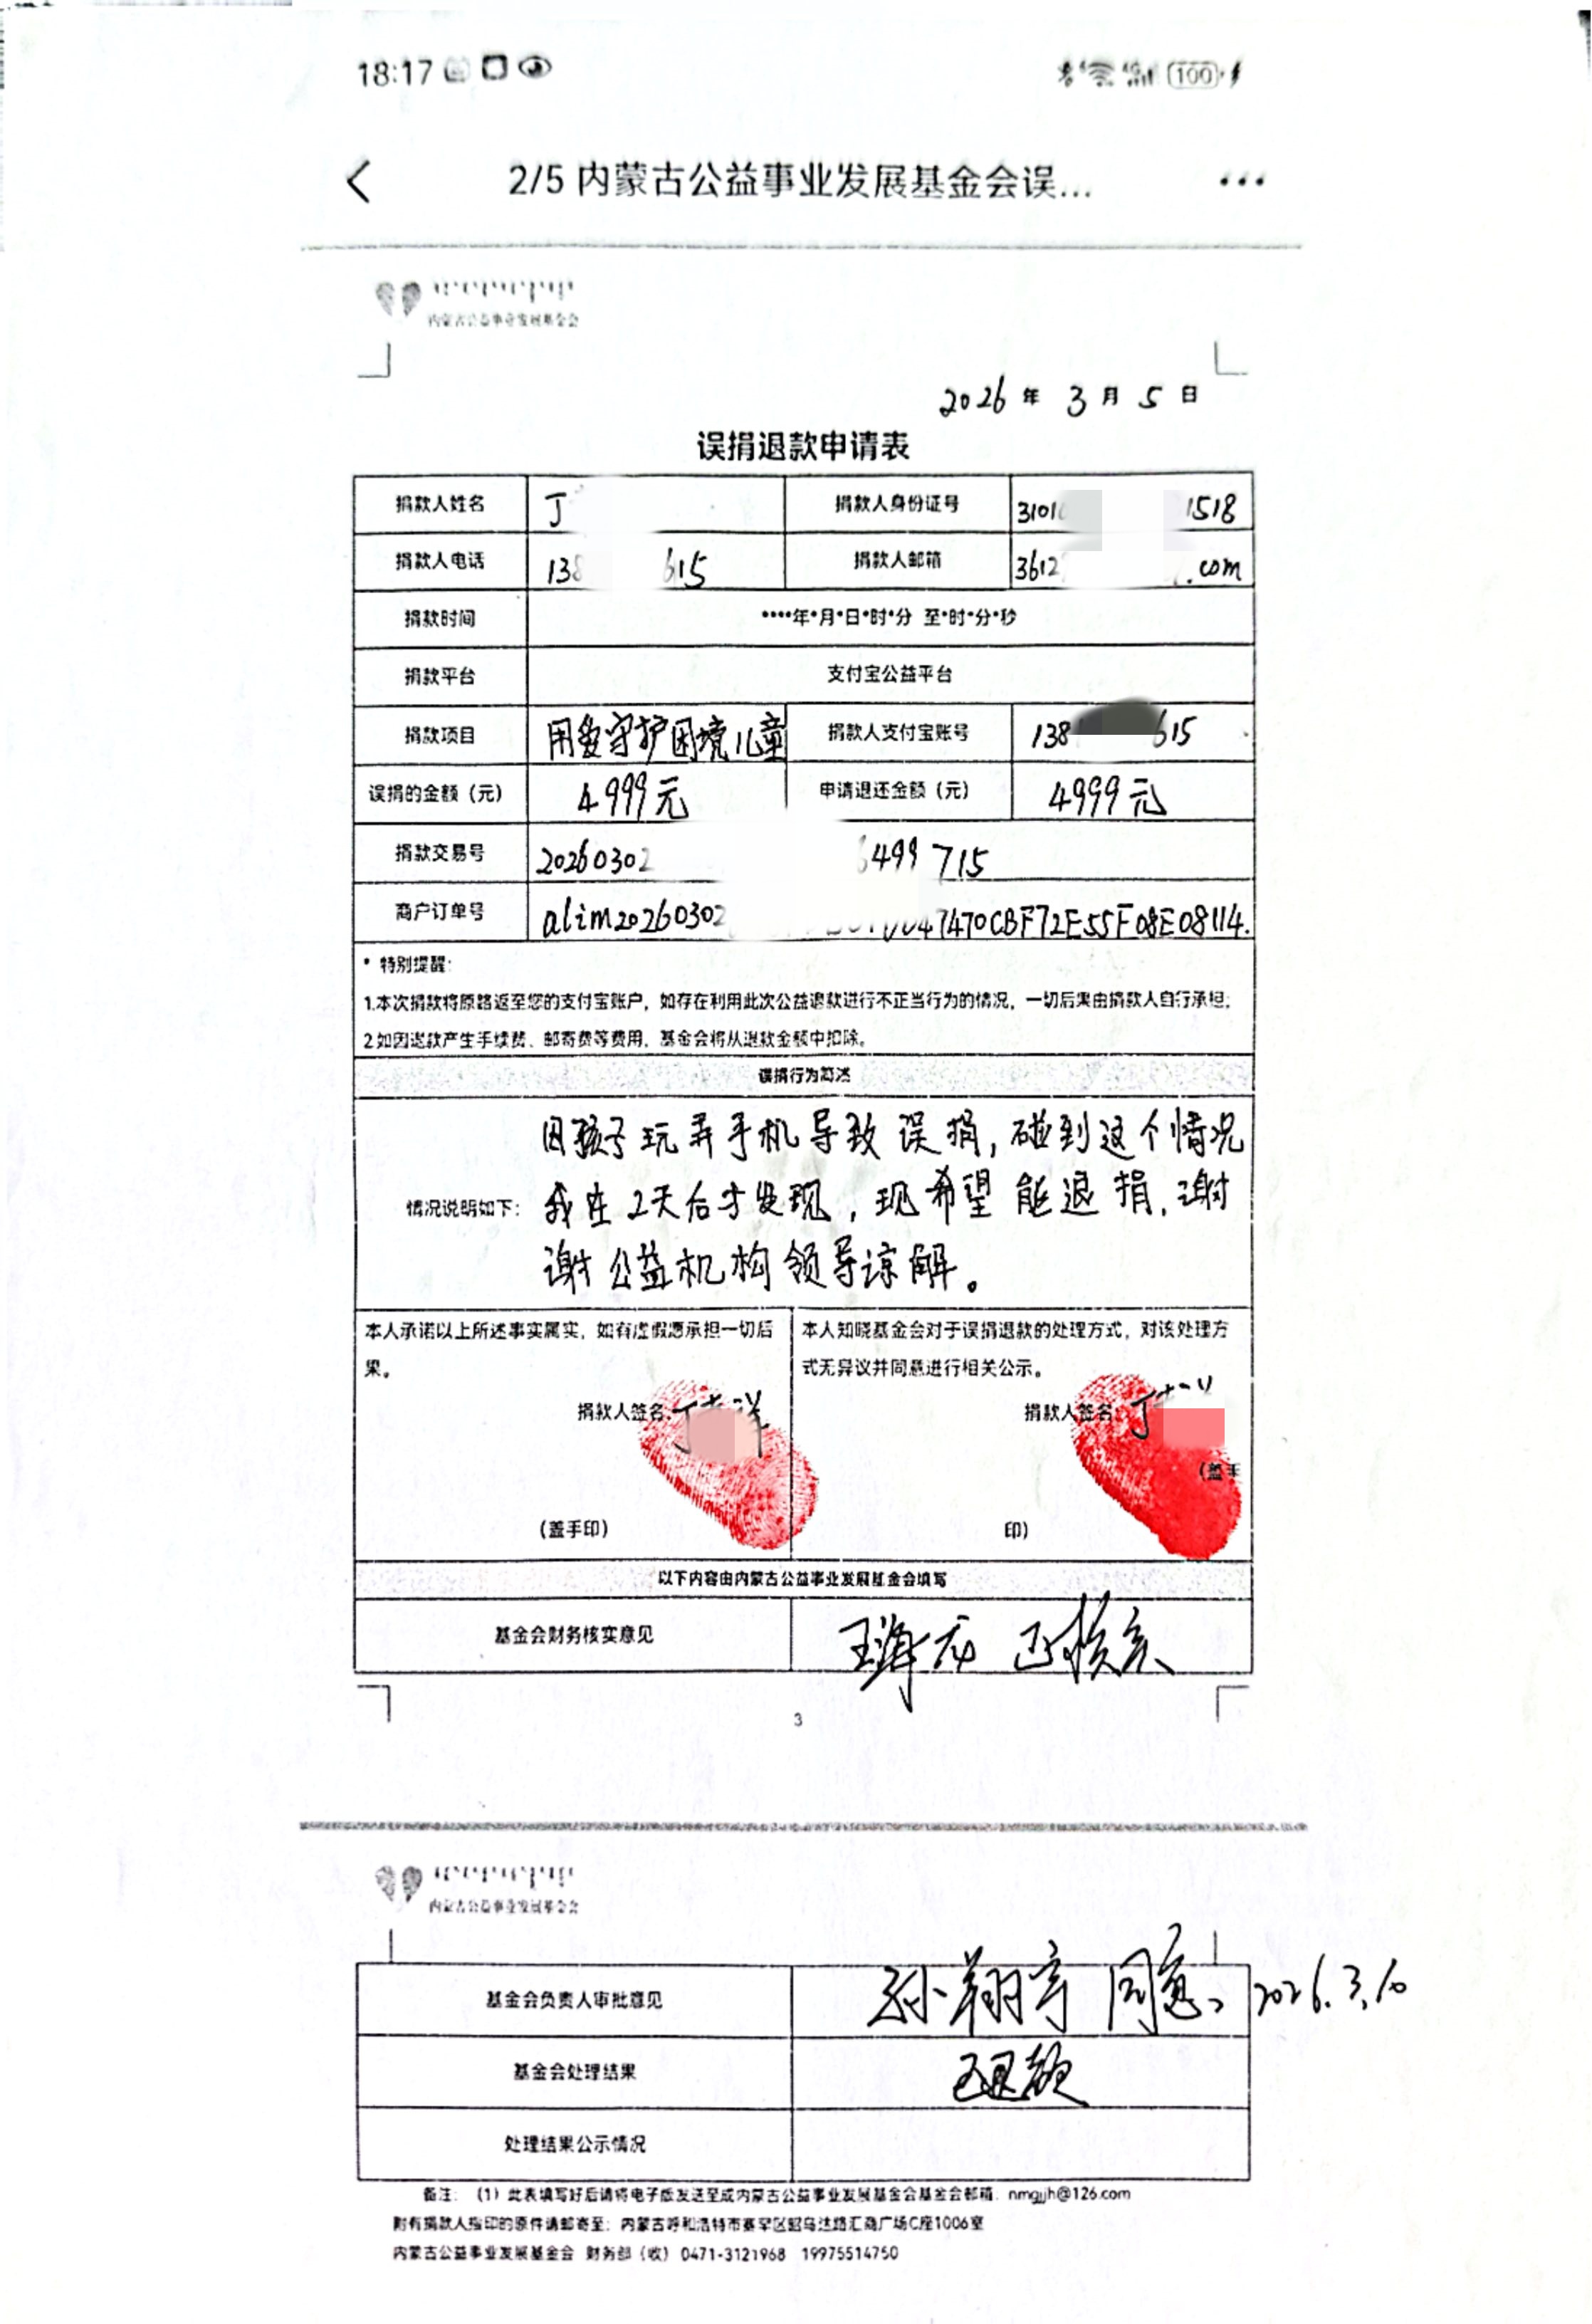 18:17
100
2/5 内蒙古公益事业发展基金会误...
内蒙古公益事业发展基金会
2026 年 3 月 5 日
误捐退款申请表
捐款人姓名 丁 捐款人身份证号 3101 1518
捐款人电话 138 615 捐款人邮箱 3612 .com
捐款时间 ****年*月*日*时*分 至*时*分*秒
捐款平台 支付宝公益平台
捐款项目 用爱守护困境儿童 捐款人支付宝账号 138 615
误捐的金额（元） 4999元 申请退还金额（元） 4999元
捐款交易号 20260302 6499715
商户订单号 alim20260302 47470CBF72E55F08E08114.
* 特别提醒：
1.本次捐款将原路返至您的支付宝账户，如存在利用此次公益退款进行不正当行为的情况，一切后果由捐款人自行承担；
2.如因退款产生手续费、邮寄费等费用，基金会将从退款金额中扣除。
误捐行为简述
情况说明如下：
因孩子玩弄手机导致误捐，碰到这个情况
我在2天后才发现，现希望能退捐，谢
谢公益机构领导谅解。
本人承诺以上所述事实属实，如有虚假愿承担一切后
果。
捐款人签名：丁
（盖手印）
本人知晓基金会对于误捐退款的处理方式，对该处理方
式无异议并同意进行相关公示。
捐款人签名：丁
（盖手
印）
以下内容由内蒙古公益事业发展基金会填写
基金会财务核实意见 王海龙 已核实
3
内蒙古公益事业发展基金会
基金会负责人审批意见 孙翔宇 同意、2026.3.10
基金会处理结果 已退款
处理结果公示情况
备注：（1）此表填写好后请将电子版发送至成内蒙古公益事业发展基金会基金会邮箱：nmgjjh@126.com
附有捐款人指印的原件请邮寄至：内蒙古呼和浩特市赛罕区昭乌达路汇商广场C座1006室
内蒙古公益事业发展基金会 财务部（收）0471-3121968 19975514750